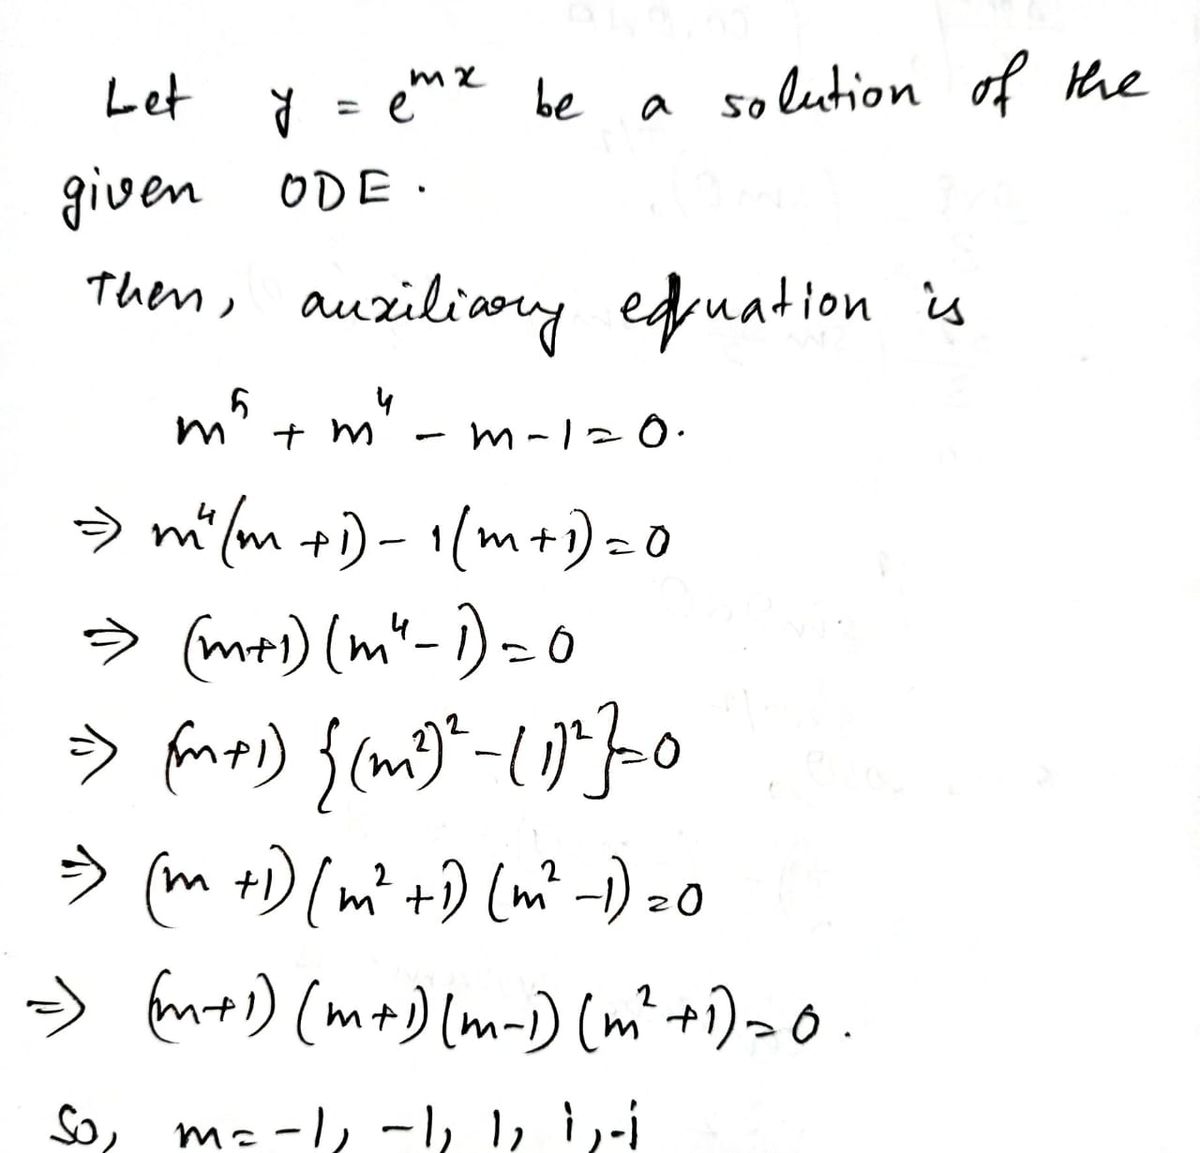 Let y = e^{mx} be a solution of the
given ODE.
Then, auxiliary equation is
m^5 + m^4 - m - 1 = 0.
⇒ m^4(m+1) - 1(m+1) = 0
⇒ (m+1)(m^4-1) = 0
⇒ (m+1) {(m^2)^2 - (1)^2} = 0
⇒ (m+1)(m^2+1)(m^2-1) = 0
⇒ (m+1)(m+1)(m-1)(m^2+1) = 0.
So, m = -1, -1, 1, i, -i